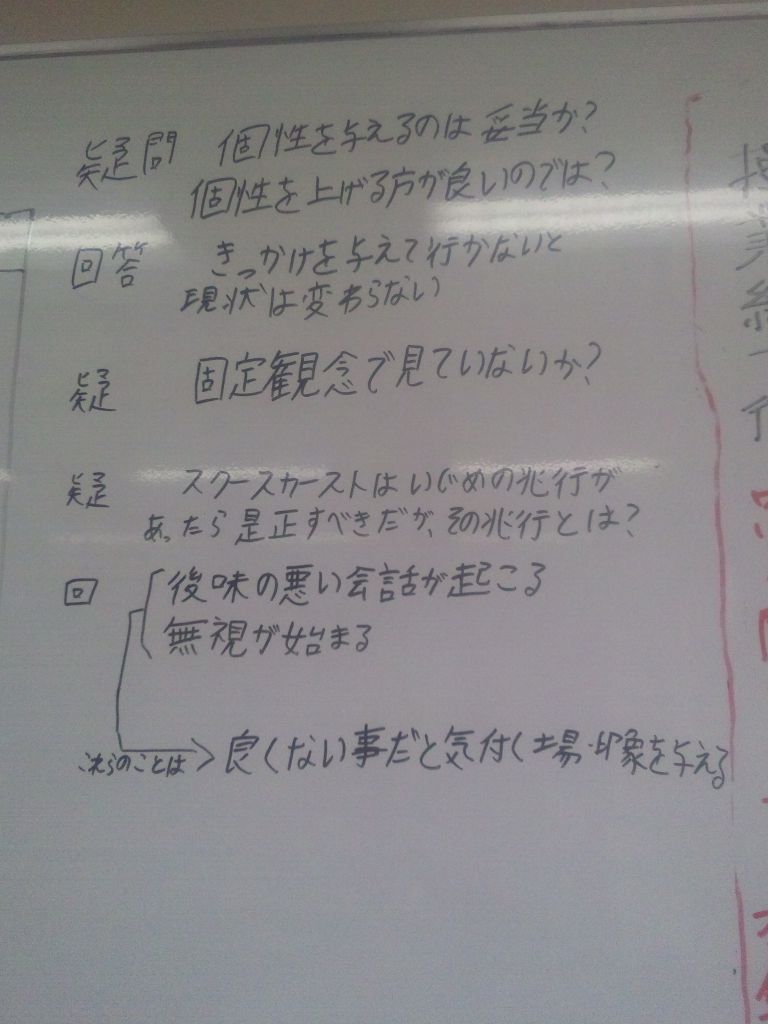 疑問 個性を与えるのは妥当か?
個性を上げる方が良いのでは?
回答 きっかけを与えて行かないと
現状は変わらない
疑 固定観念で見ていないか?
疑 スクースカーストはいじめの兆行が
あったら是正すべきだが、その兆行とは?
回 後味の悪い会話が起こる
無視が始まる
これらのことは> 良くない事だと気付く場・印象を与える